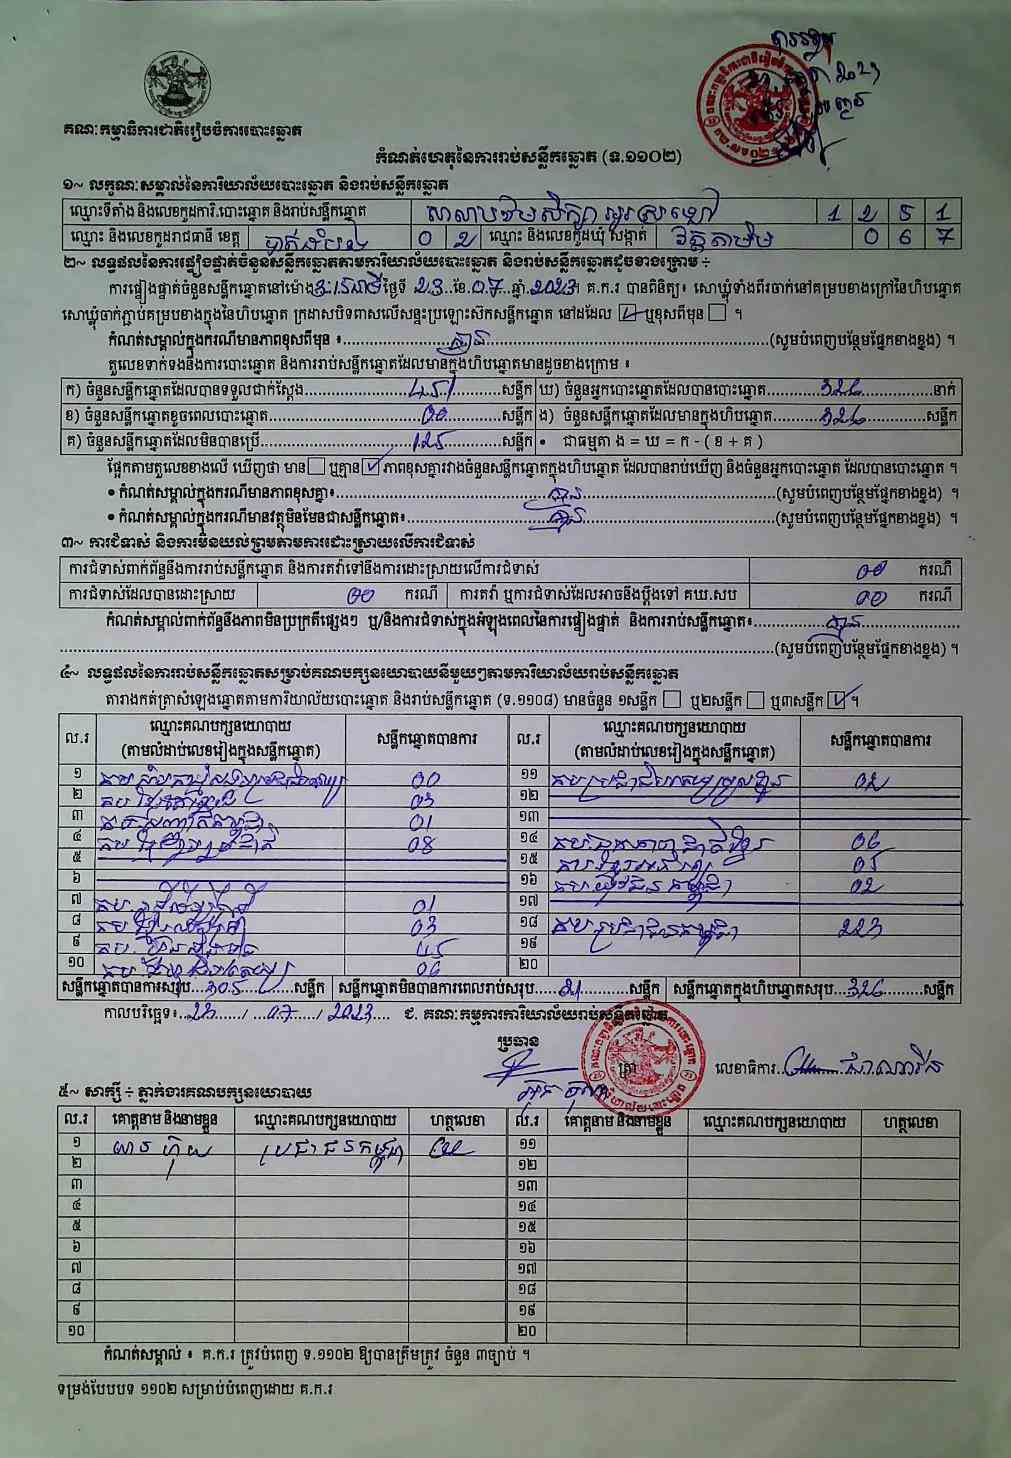 គណៈកម្មាធិការជាតិរៀបចំការបោះឆ្នោត
កំណត់ហេតុនៃការរាប់សន្លឹកឆ្នោត (ទ.១១០២)
១~ លក្ខណៈសម្គាល់នៃការិយាល័យបោះឆ្នោត និងរាប់សន្លឹកឆ្នោត
ឈ្មោះទីតាំង និងលេខកូដការិ.បោះឆ្នោត និងរាប់សន្លឹកឆ្នោត 1 2 5 1
ឈ្មោះ និងលេខកូដរាជធានី ខេត្ត បាត់ដំបង 0 2 ឈ្មោះ និងលេខកូដឃុំ សង្កាត់ វត្តតាមិម 0 6 7
២~ លទ្ធផលនៃការផ្ទៀងផ្ទាត់ចំនួនសន្លឹកឆ្នោតតាមការិយាល័យបោះឆ្នោត និងរាប់សន្លឹកឆ្នោតដូចខាងក្រោម ÷
ការផ្ទៀងផ្ទាត់ចំនួនសន្លឹកឆ្នោតនៅម៉ោង ថ្ងៃទី 23 ខែ 07 ឆ្នាំ 2023 ។ គ.ក.រ បានពិនិត្យ៖ សោឃ្លុំទាំងពីរចាក់នៅគម្របខាងក្រៅនៃហិបឆ្នោត
សោឃ្លុំចាក់ភ្ជាប់គម្របខាងក្នុងនៃហិបឆ្នោត ក្រដាសបិទពាសលើសន្ទះប្រឡោះស៊កសន្លឹកឆ្នោត នៅដដែល ☑ ឬខុសពីមុន ☐ ។
កំណត់សម្គាល់ក្នុងករណីមានភាពខុសពីមុន ៖ គ្មាន (សូមបំពេញបន្ថែមផ្នែកខាងខ្នង) ។
តួលេខទាក់ទងនឹងការបោះឆ្នោត និងការរាប់សន្លឹកឆ្នោតដែលមានក្នុងហិបឆ្នោតមានដូចខាងក្រោម ៖
ក) ចំនួនសន្លឹកឆ្នោតដែលបានទទួលជាក់ស្ដែង 451 សន្លឹក ឃ) ចំនួនអ្នកបោះឆ្នោតដែលបានបោះឆ្នោត 326 នាក់
ខ) ចំនួនសន្លឹកឆ្នោតខូចពេលបោះឆ្នោត 00 សន្លឹក ង) ចំនួនសន្លឹកឆ្នោតដែលមានក្នុងហិបឆ្នោត 326 សន្លឹក
គ) ចំនួនសន្លឹកឆ្នោតដែលមិនបានប្រើ 125 សន្លឹក • ជាធម្មតា ង = ឃ = ក - ( ខ + គ )
ផ្អែកតាមតួលេខខាងលើ ឃើញថា មាន ☐ ឬគ្មាន ☑ ភាពខុសគ្នារវាងចំនួនសន្លឹកឆ្នោតក្នុងហិបឆ្នោត ដែលបានរាប់ឃើញ និងចំនួនអ្នកបោះឆ្នោត ដែលបានបោះឆ្នោត ។
• កំណត់សម្គាល់ក្នុងករណីមានភាពខុសគ្នា៖ គ្មាន (សូមបំពេញបន្ថែមផ្នែកខាងខ្នង) ។
• កំណត់សម្គាល់ក្នុងករណីមានវត្ថុមិនមែនជាសន្លឹកឆ្នោត៖ គ្មាន (សូមបំពេញបន្ថែមផ្នែកខាងខ្នង) ។
៣~ ការជំទាស់ និងការមិនយល់ព្រមតាមការដោះស្រាយលើការជំទាស់
ការជំទាស់ពាក់ព័ន្ធនឹងការរាប់សន្លឹកឆ្នោត និងការតវ៉ាទៅនឹងការដោះស្រាយលើការជំទាស់ 00 ករណី
ការជំទាស់ដែលបានដោះស្រាយ 00 ករណី ការតវ៉ា ឬការជំទាស់ដែលអាចនឹងប្ដឹងទៅ គឃ.សប 00 ករណី
កំណត់សម្គាល់ពាក់ព័ន្ធនឹងភាពមិនប្រក្រតីផ្សេងៗ ឬ/និងការជំទាស់ក្នុងអំឡុងពេលនៃការផ្ទៀងផ្ទាត់ និងការរាប់សន្លឹកឆ្នោត៖ គ្មាន
(សូមបំពេញបន្ថែមផ្នែកខាងខ្នង) ។
៤~ លទ្ធផលនៃការរាប់សន្លឹកឆ្នោតសម្រាប់គណបក្សនយោបាយនីមួយៗតាមការិយាល័យរាប់សន្លឹកឆ្នោត
តារាងកត់ត្រាសំឡេងឆ្នោតតាមការិយាល័យបោះឆ្នោត និងរាប់សន្លឹកឆ្នោត (ទ.១១០៨) មានចំនួន ១សន្លឹក ☐ ឬ២សន្លឹក ☐ ឬ៣សន្លឹក ☑ ។
ល.រ ឈ្មោះគណបក្សនយោបាយ (តាមលំដាប់លេខរៀងក្នុងសន្លឹកឆ្នោត) សន្លឹកឆ្នោតបានការ ល.រ ឈ្មោះគណបក្សនយោបាយ (តាមលំដាប់លេខរៀងក្នុងសន្លឹកឆ្នោត) សន្លឹកឆ្នោតបានការ
១ 00 ១១ 02
២ 03 ១២
៣ 01 ១៣
៤ 08 ១៤ 06
៥ ១៥ 05
៦ ១៦ 02
៧ 01 ១៧
៨ 03 ១៨ គប.ប្រជាជនកម្ពុជា 223
៩ 45 ១៩
១០ 06 ២០
សន្លឹកឆ្នោតបានការសរុប 305 សន្លឹក សន្លឹកឆ្នោតមិនបានការពេលរាប់សរុប 21 សន្លឹក សន្លឹកឆ្នោតក្នុងហិបឆ្នោតសរុប 326 សន្លឹក
កាលបរិច្ឆេទ៖ 23 / 07 / 2023 ជ. គណៈកម្មការការិយាល័យរាប់សន្លឹកឆ្នោត
ប្រធាន
ត្រា លេខាធិការ
៥~ សាក្សី ÷ ភ្នាក់ងារគណបក្សនយោបាយ
ល.រ គោត្តនាម និងនាមខ្លួន ឈ្មោះគណបក្សនយោបាយ ហត្ថលេខា ល.រ គោត្តនាម និងនាមខ្លួន ឈ្មោះគណបក្សនយោបាយ ហត្ថលេខា
១ ប្រជាជនកម្ពុជា ១១
២ ១២
៣ ១៣
៤ ១៤
៥ ១៥
៦ ១៦
៧ ១៧
៨ ១៨
៩ ១៩
១០ ២០
កំណត់សម្គាល់ ៖ គ.ក.រ ត្រូវបំពេញ ទ.១១០២ ឱ្យបានត្រឹមត្រូវ ចំនួន ៣ច្បាប់ ។
ទម្រង់បែបបទ ១១០២ សម្រាប់បំពេញដោយ គ.ក.រ